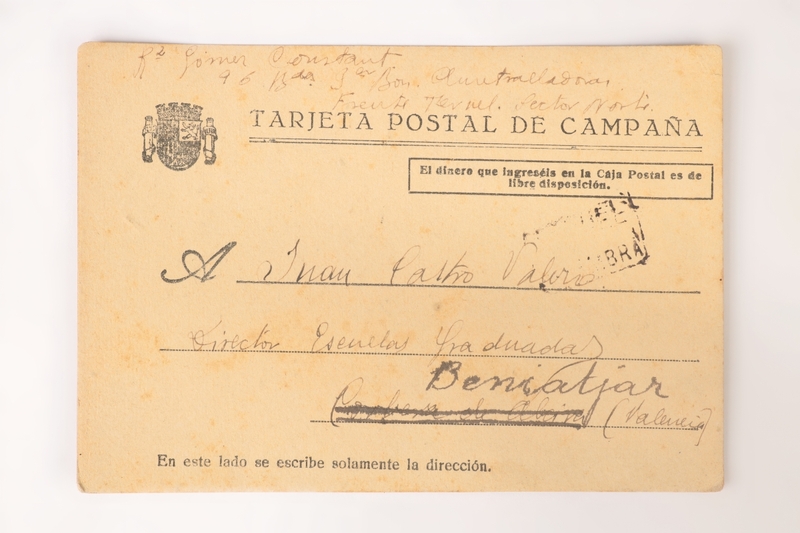 Rº Gómez Constant
96 Bda. 3er Bon. Ametralladoras
Frente Teruel. Sector Norte.
TARJETA POSTAL DE CAMPAÑA
El dinero que ingreséis en la Caja Postal es de
libre disposición.
A Juan Castro Valero
Director Escuelas Graduadas
Beniatjar
(Valencia)
En este lado se escribe solamente la dirección.